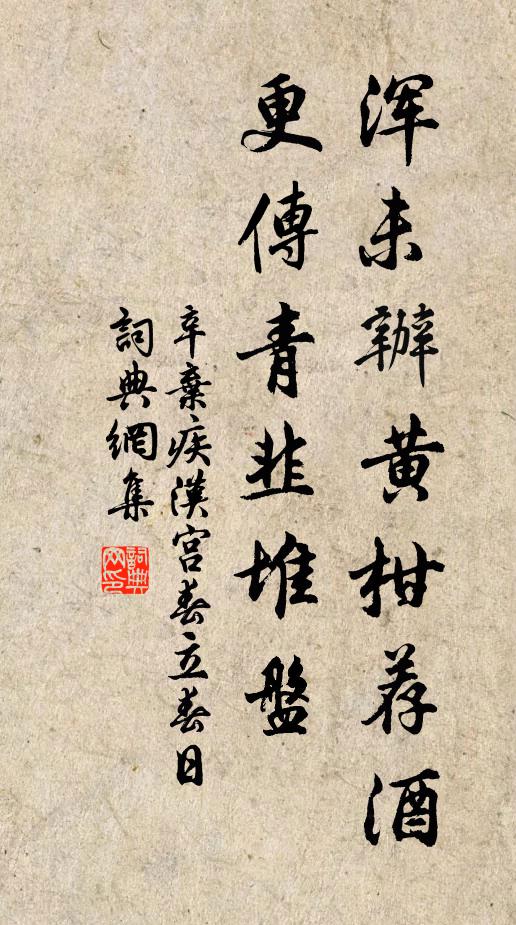 渾未辦黃柑荐酒
更傳青韭堆盤
辛棄疾漢宮春立春日
詞典網集
詞典网印